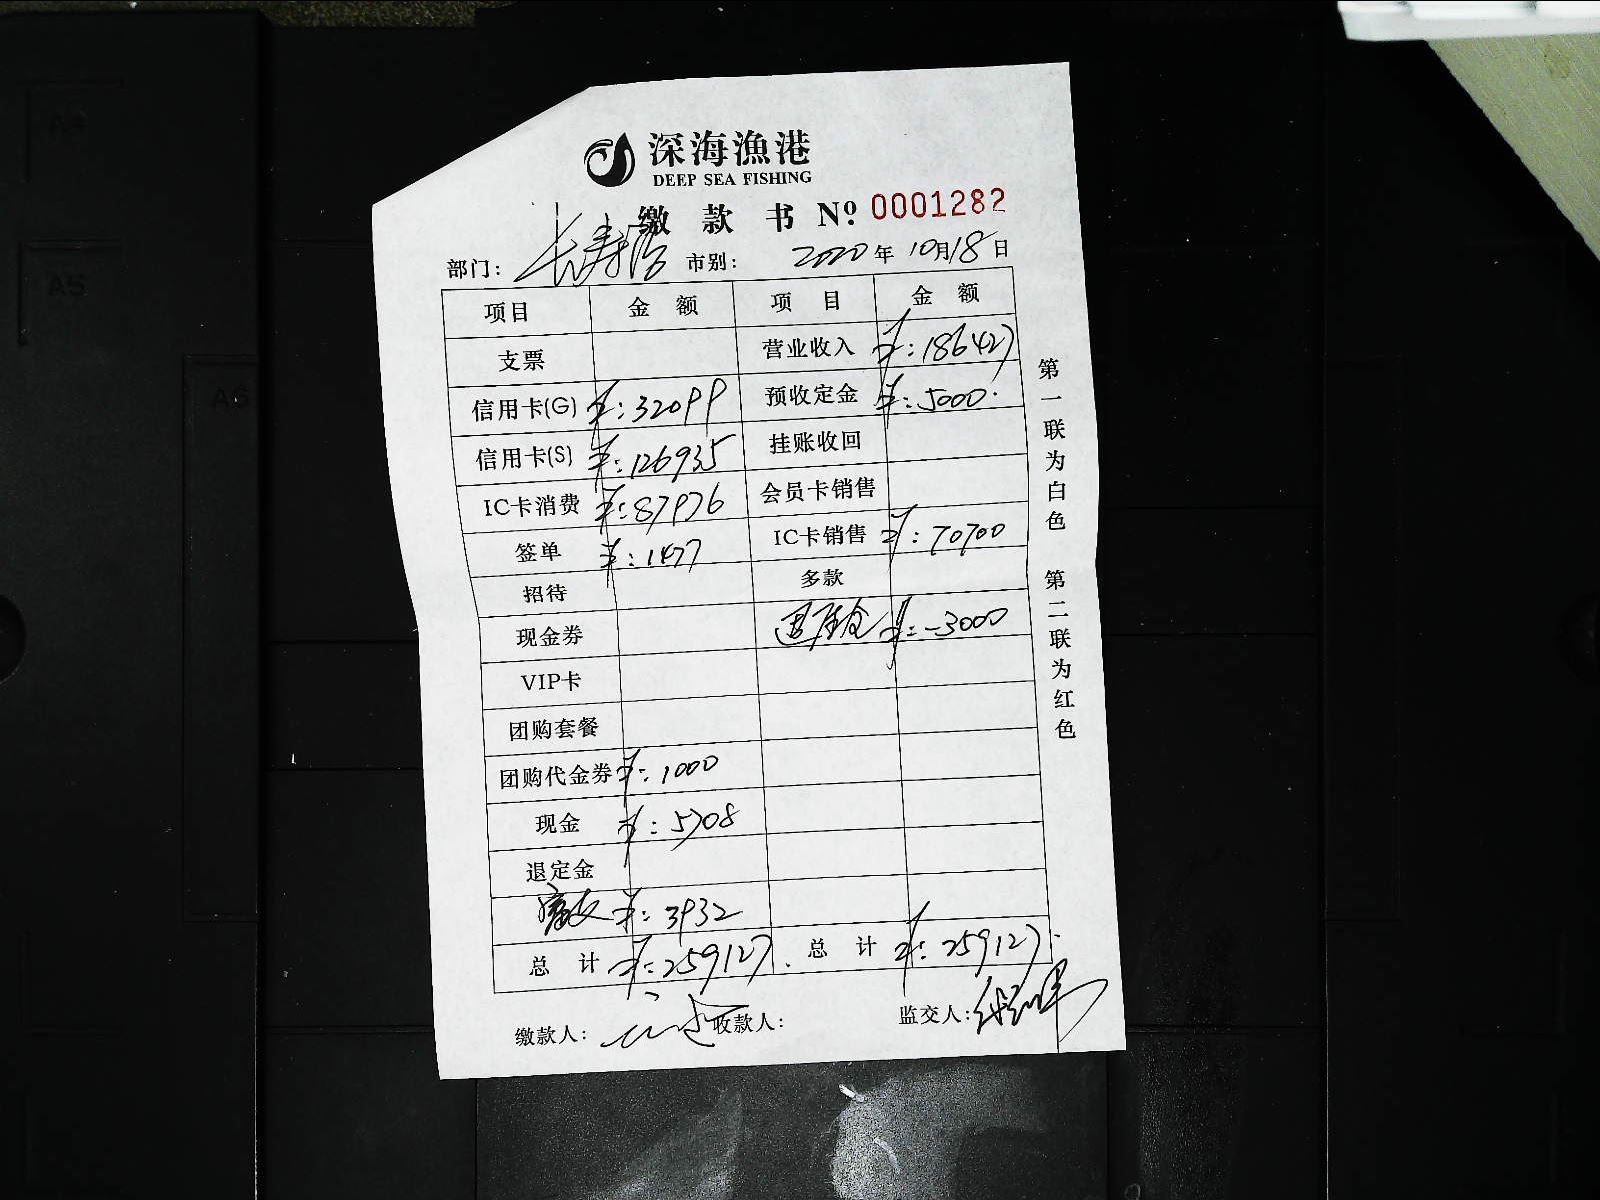 A4
A5
A6
深海漁港
DEEP SEA FISHING
缴款书 Nº 0001282
部门: 长寿路 市别: 2020年10月18日
项目 金额 项目 金额
支票 营业收入 ¥:186427
信用卡(G) ¥:32099 预收定金 ¥:5000.
信用卡(S) ¥:126935 挂账收回
IC卡消费 ¥:87976 会员卡销售
签单 ¥:1477 IC卡销售 ¥:70700
招待 多款
现金券 ¥:-3000
VIP卡
团购套餐
团购代金券 ¥:1000
现金 ¥:5708
退定金
¥:3932
总计 ¥:259127. 总计 ¥:259127.
缴款人: 收款人: 监交人:
第一联为白色 第二联为红色